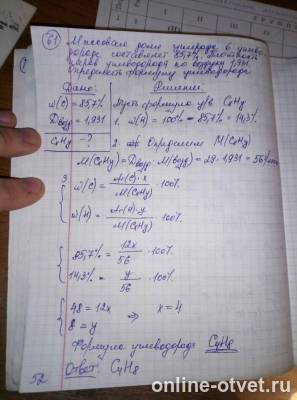 61 Массовая доля углерода в углево-
дороде составляет 85,7%. Плотность
паров углеводорода по воздуху 1,931
Определить формулу углеводорода.
Дано: Решение:
w(C) = 85,7% Пусть формула у/в CxHy
Dвозд = 1,931 1. w(H) = 100% - 85,7% = 14,3%
CxHy - ? 2. Определяем M(CxHy)
M(CxHy) = Dвозд · M(возд) = 29 · 1,931 = 56 г/моль
3 w(C) = Ar(C)·x / M(CxHy) · 100%
w(H) = Ar(H)·y / M(CxHy) · 100%
85,7% = 12x / 56 · 100%
14,3% = y / 56 · 100%
48 = 12x => x = 4
8 = y
Формула углеводорода C4H8
Ответ: C4H8
52
online-otvet.ru